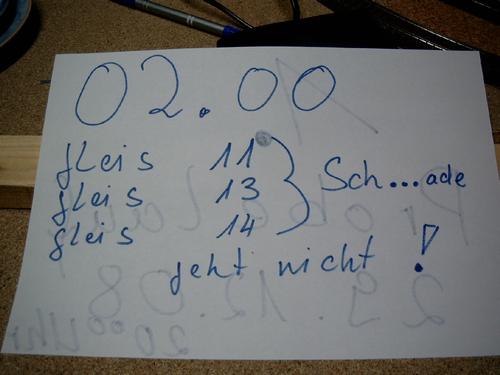 02.00
gleis 11
gleis 13 } Sch...ade
gleis 14
geht nicht !